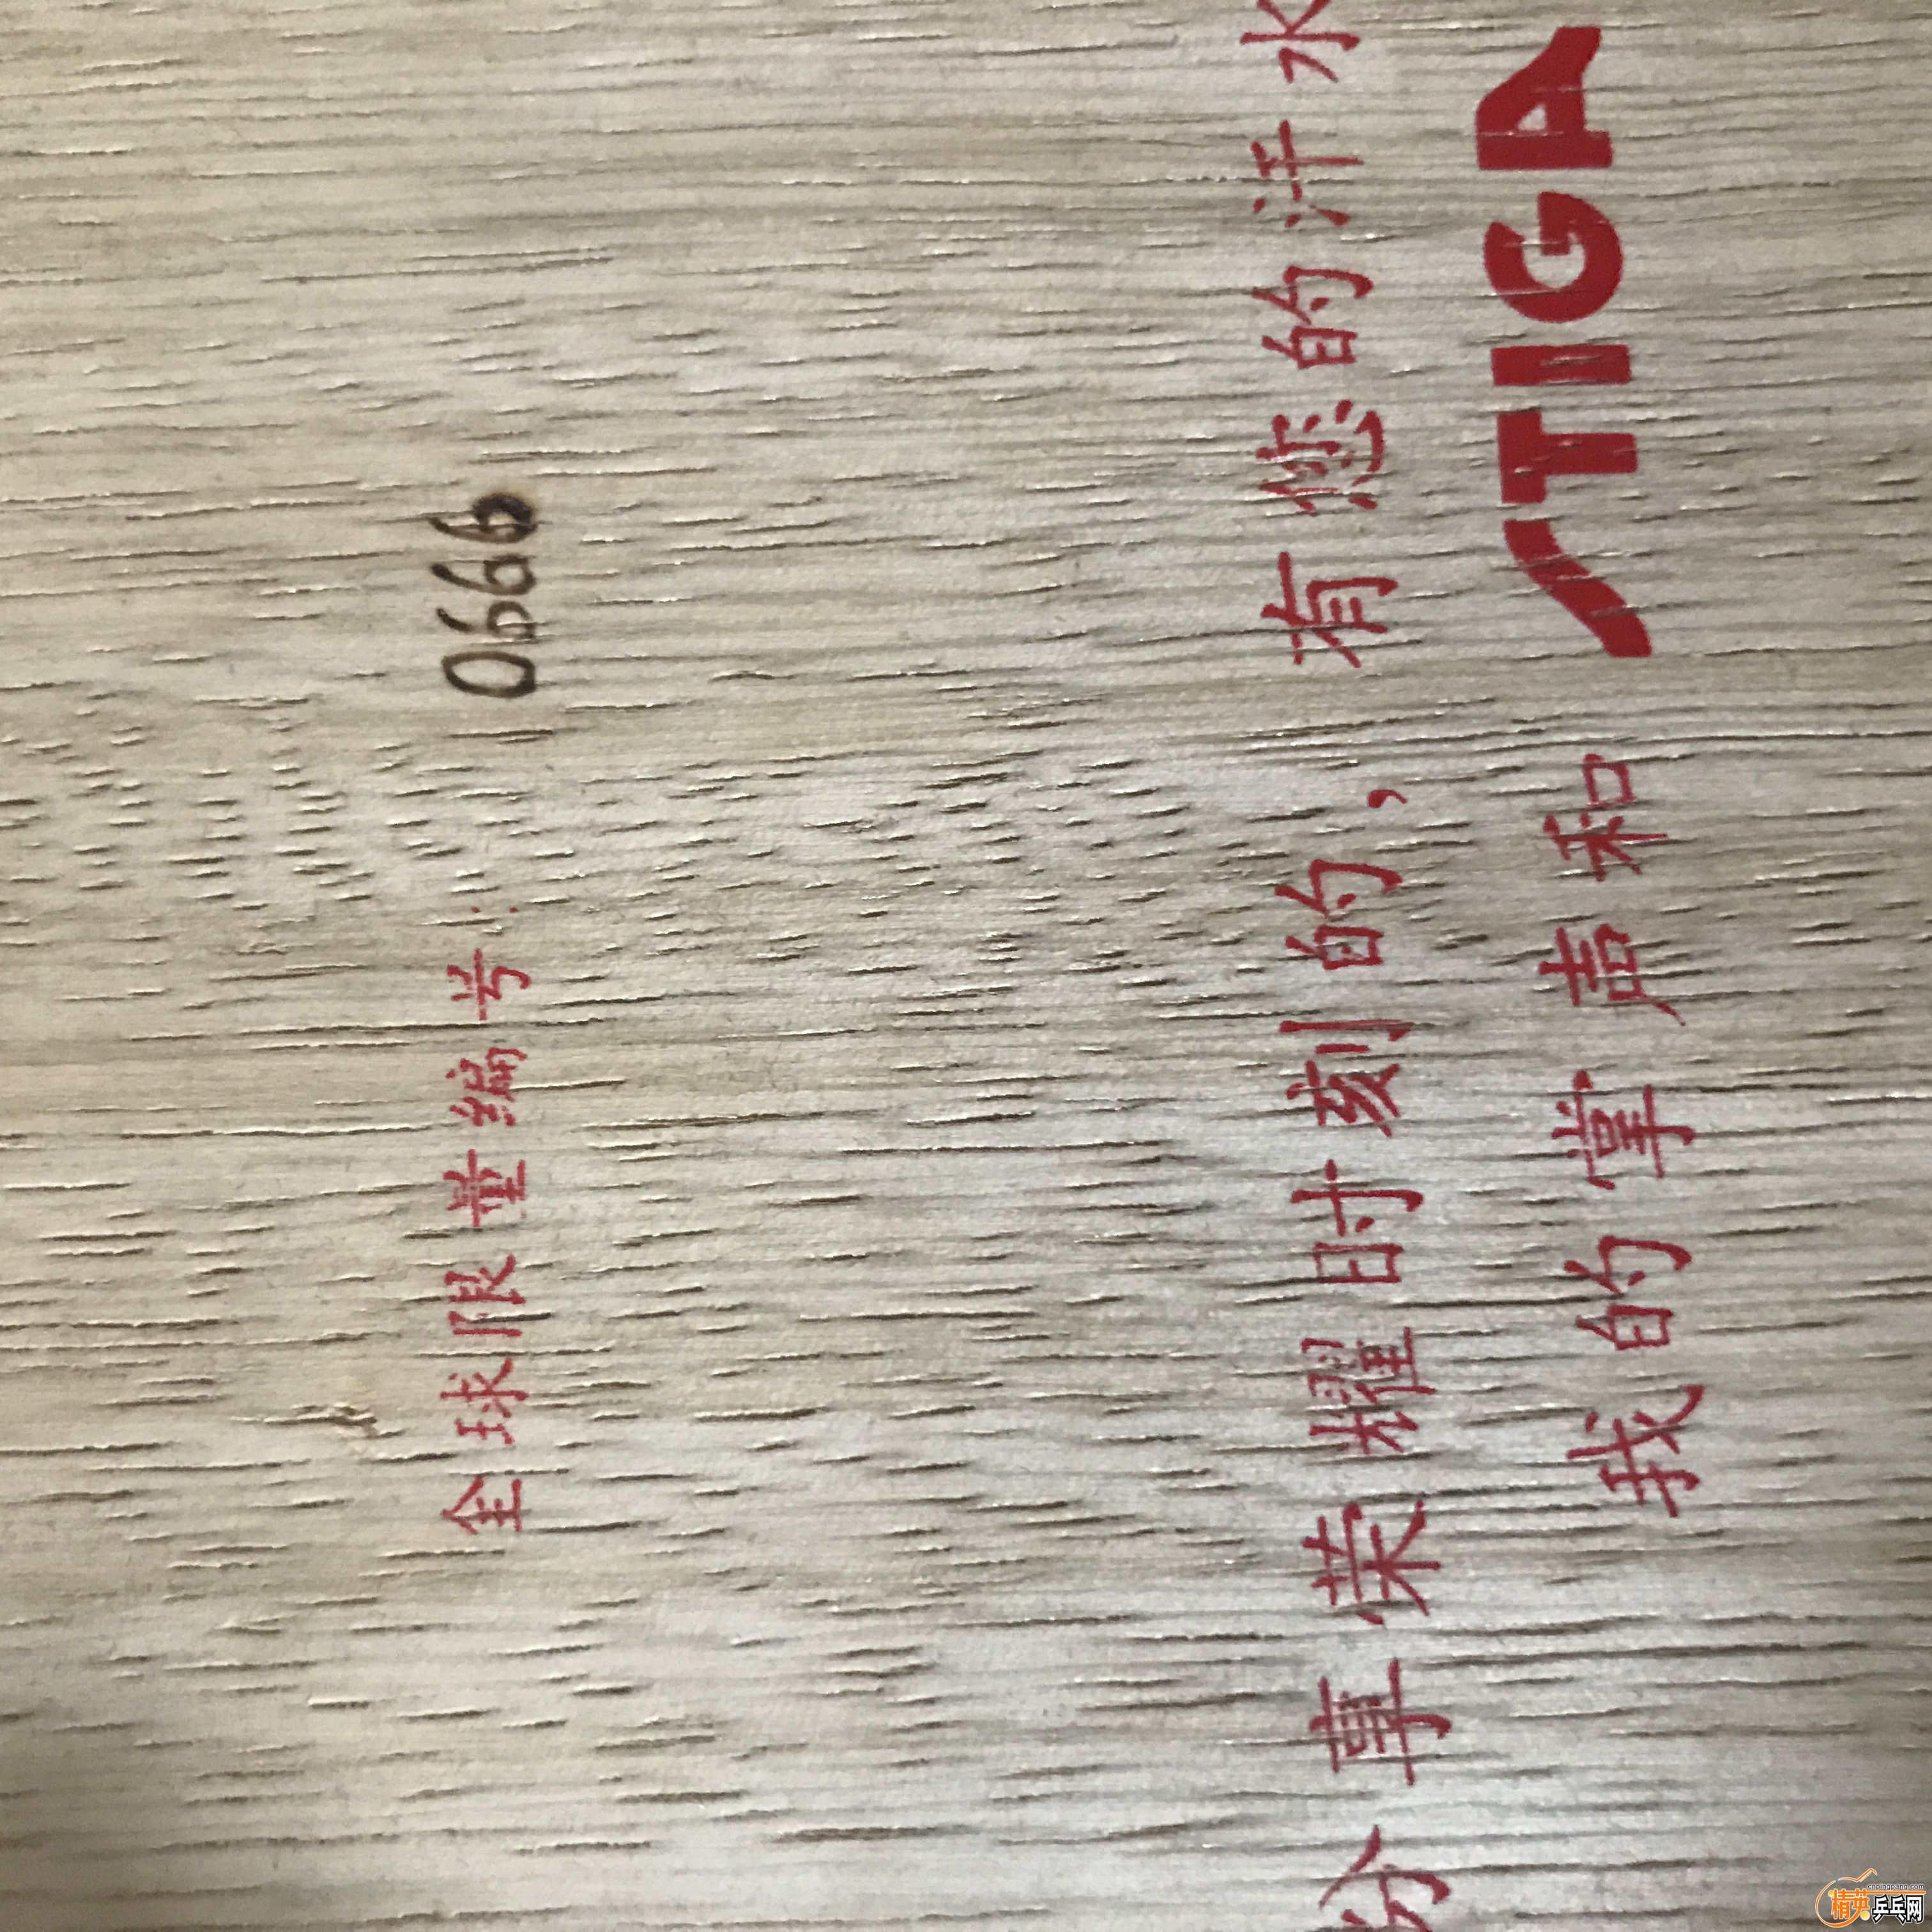 全球限量编号: 0666
分享荣耀时刻的,有您的汗水
我的掌声和 STIGA
cnpingpang.com
精英乒乓网